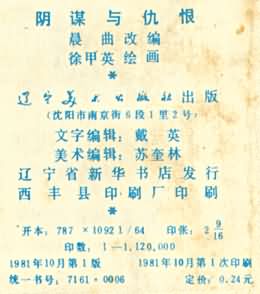 阴谋与仇恨
晨曲改编
徐甲英绘画
*
辽宁美术出版社出版
(沈阳市南京街6段1里2号)
文字编辑：戴英
美术编辑：苏奎林
辽宁省新华书店发行
西丰县印刷厂印刷
*
开本：787×1092 1/64 印张：2 9/16
印数：1—1,120,000
1981年10月第1版 1981年10月第1次印刷
统一书号：7161·0006 定价：0.24元